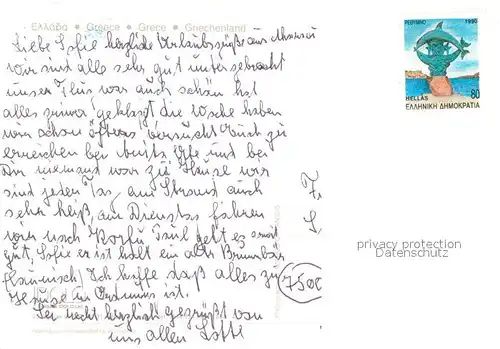 Ελλάδα • Greece • Grèce • Griechenland
Liebe Sofie herzliche Urlaubsgrüße aus
wir sind alle sehr gut untergebracht
unser Flug war auch schön hat
alles prima geklappt die Woche haben
wir schon öfters versucht Euch zu
erreichen bei und bei
Dir niemand war zu Hause wir
sind jeden Tag am Strand auch
sehr heiß, am Dienstag fahren
wir nach Korfu Paul geht es sonst
gut, Sofie er ist halt ein alter Brummbär
(launisch) Ich hoffe daß alles zu
Hause in Ordnung ist.
Sei recht herzlich gegrüßt von
uns allen Lotte
7500
ΡΕΘΥΜΝΟ 1990
80
HELLAS
ΕΛΛΗΝΙΚΗ ΔΗΜΟΚΡΑΤΙΑ
privacy protection
Datenschutz